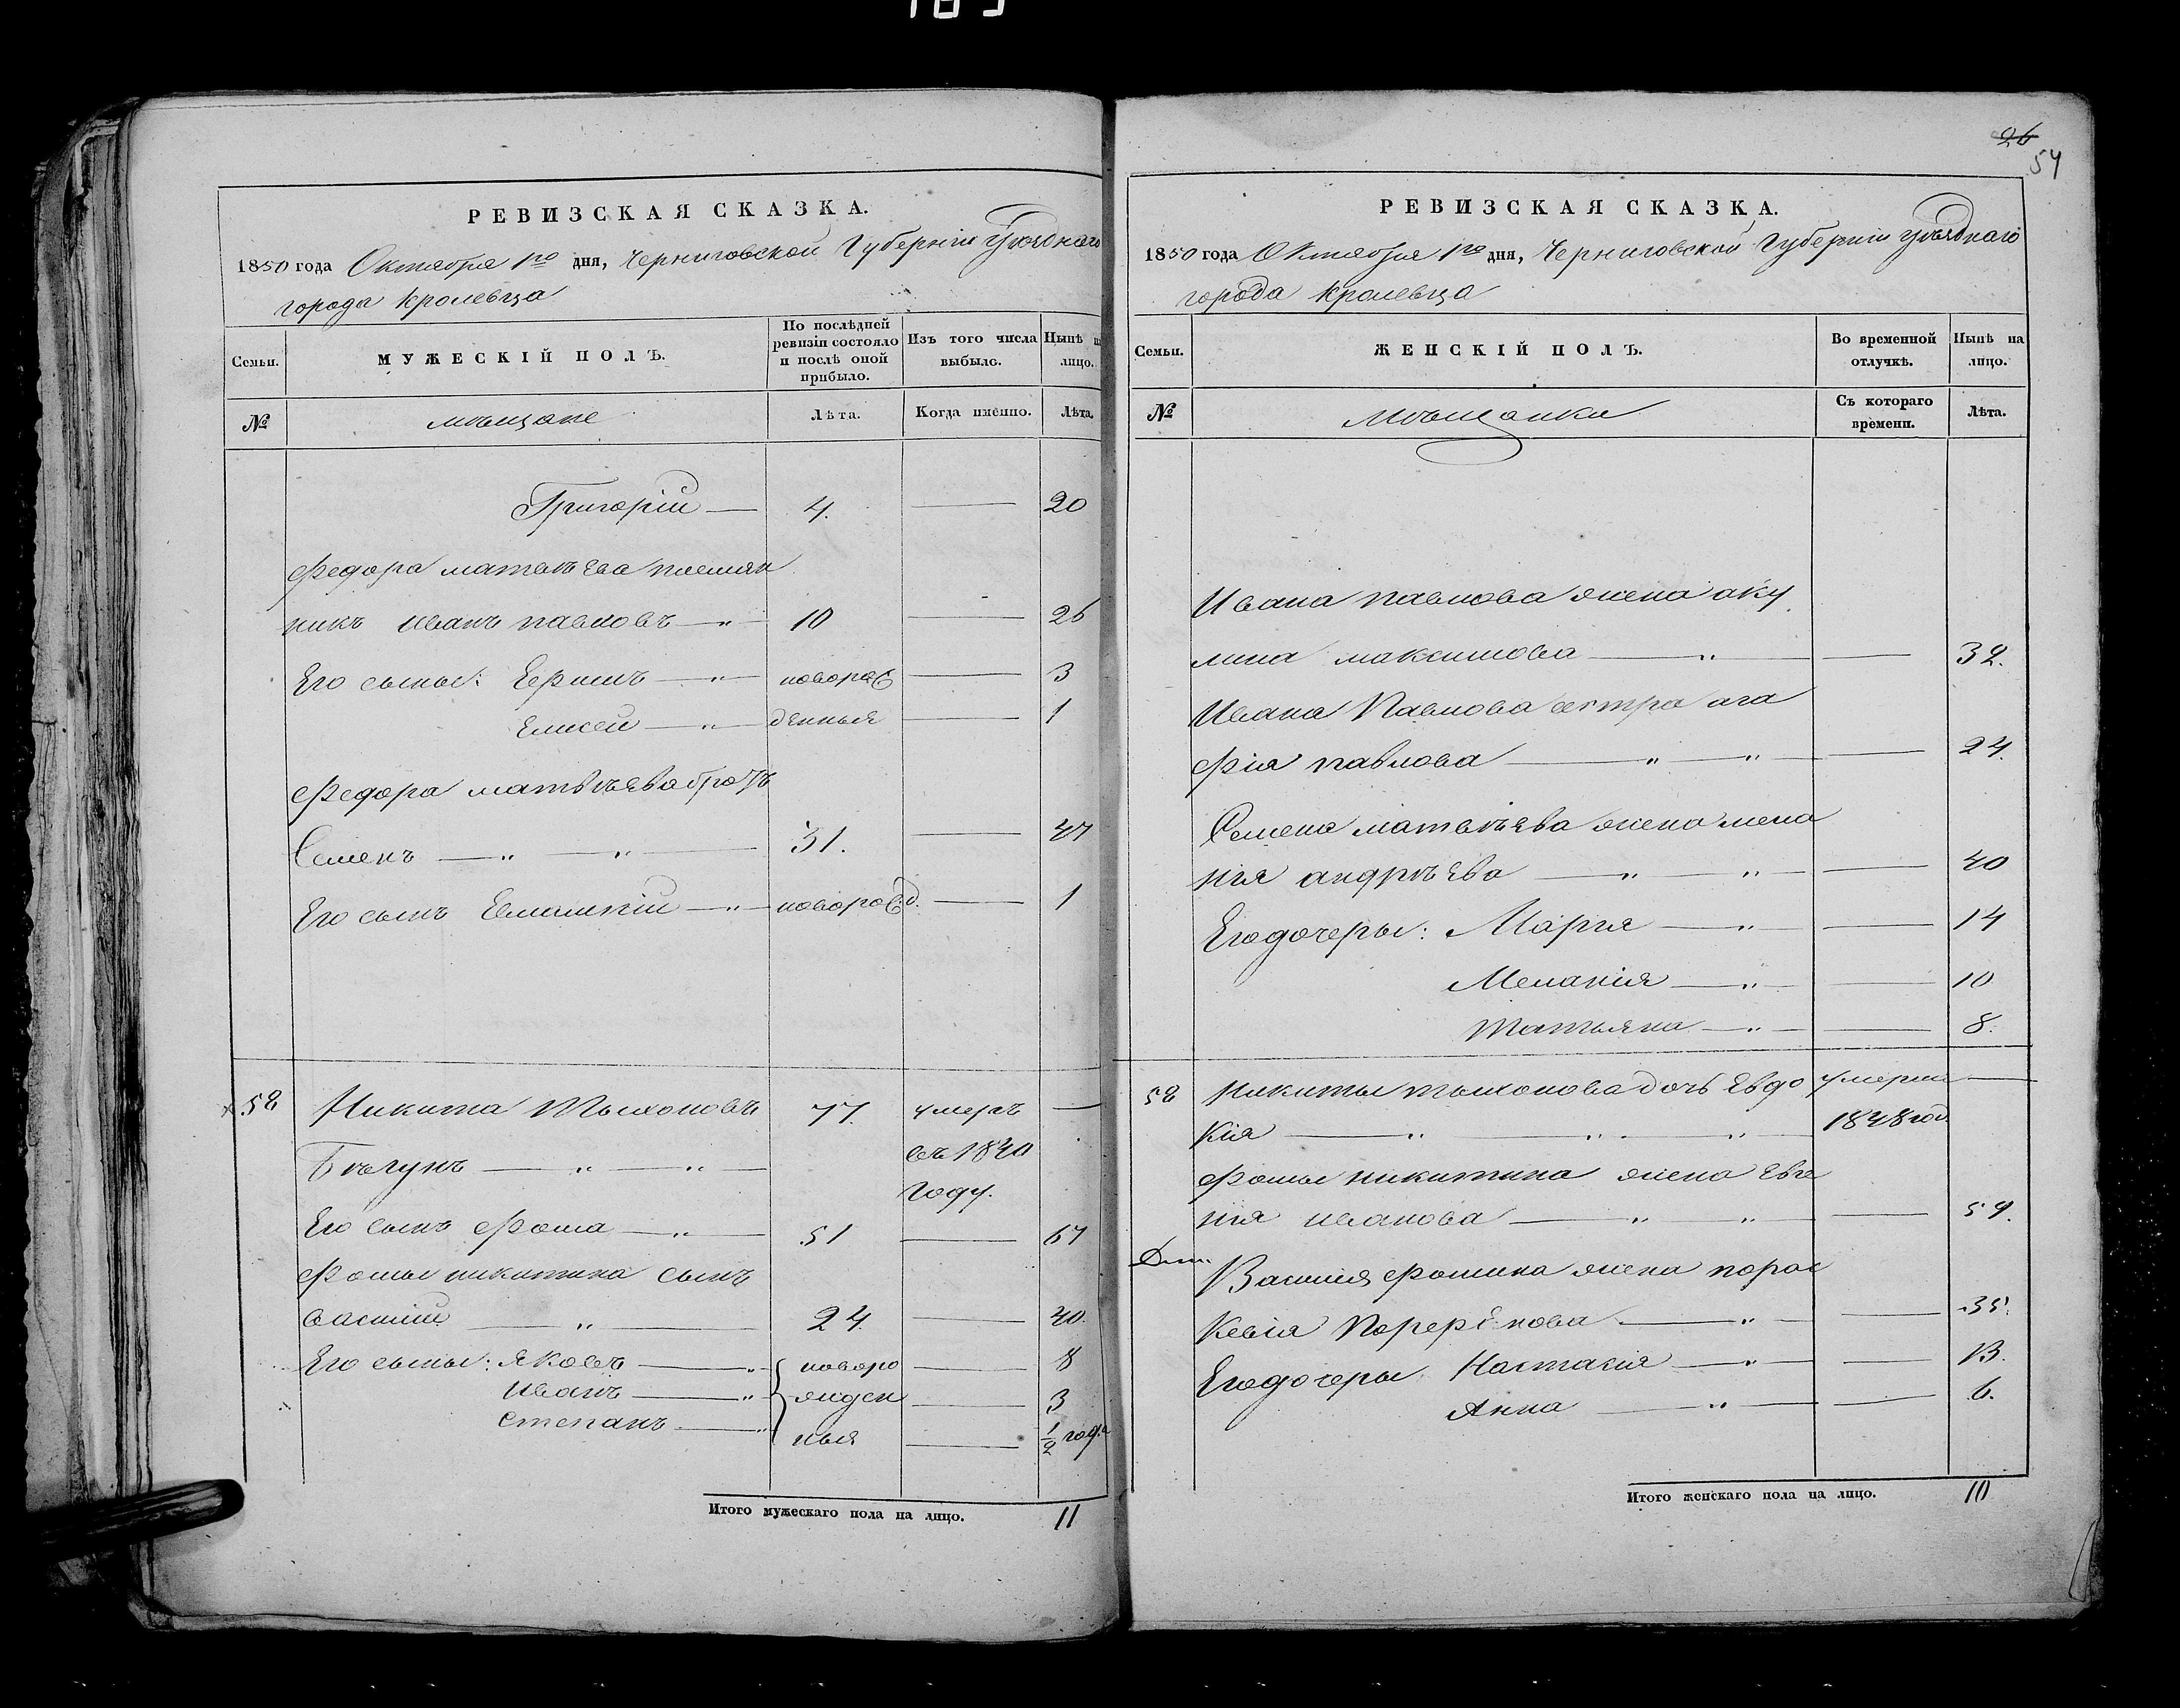 РЕВИЗСКАЯ СКАЗКА.
1850 года Октября 1го дня, Черниговской Губерніи Уѣзднаго
города Кролевца
Семьи. МУЖЕСКІЙ ПОЛЪ. По послѣдней ревизіи состояло и послѣ оной прибыло. Изъ того числа выбыло. Нынѣ на лицо.
№ мѣщане Лѣта. Когда именно. Лѣта.
Григорій 4. 20
Федора матвѣева племян
никъ иванъ павловъ 10 26
Его сыны: новорож 3
Елисей денныя 1
Федора матвѣева братъ
Семенъ 31. 47
Его сынъ новорожд. 1
52 Никита Тыхоновъ 77. умеръ
Бѣгунъ въ 1840
году.
Его сынъ Фома 51 67
Фомы никитина сынъ
василій 24. 40.
Его сыны: Яковъ новоро 8
иванъ жден 3
степанъ ныя 1/2 года
Итого мужескаго пола на лицо. 11
26
54
РЕВИЗСКАЯ СКАЗКА.
1850 года Октября 1го дня, Черниговской Губерніи уѣзднаго
города Кролевца
Семьи. ЖЕНСКІЙ ПОЛЪ. Во временной отлучкѣ. Нынѣ на лицо.
№ мѣщанки Съ котораго времени. Лѣта.
Ивана павлова жена аку
лина максимова 32.
Ивана Павлова сестра ага
фія павлова 24.
Семена матвѣева жена мела
нія андрѣева 40
Его дочеры: Марія 14
Меланія 10
Татьяна 8.
52 Никиты тыхонова дочь Евдо умерла
кія 1848 год.
Фомы никитина жена Евге
нія иванова 59.
Василія Фомина жена парас
кевія 35.
Его дочеры Настасія 13.
Анна 6.
Итого женскаго пола на лицо. 10